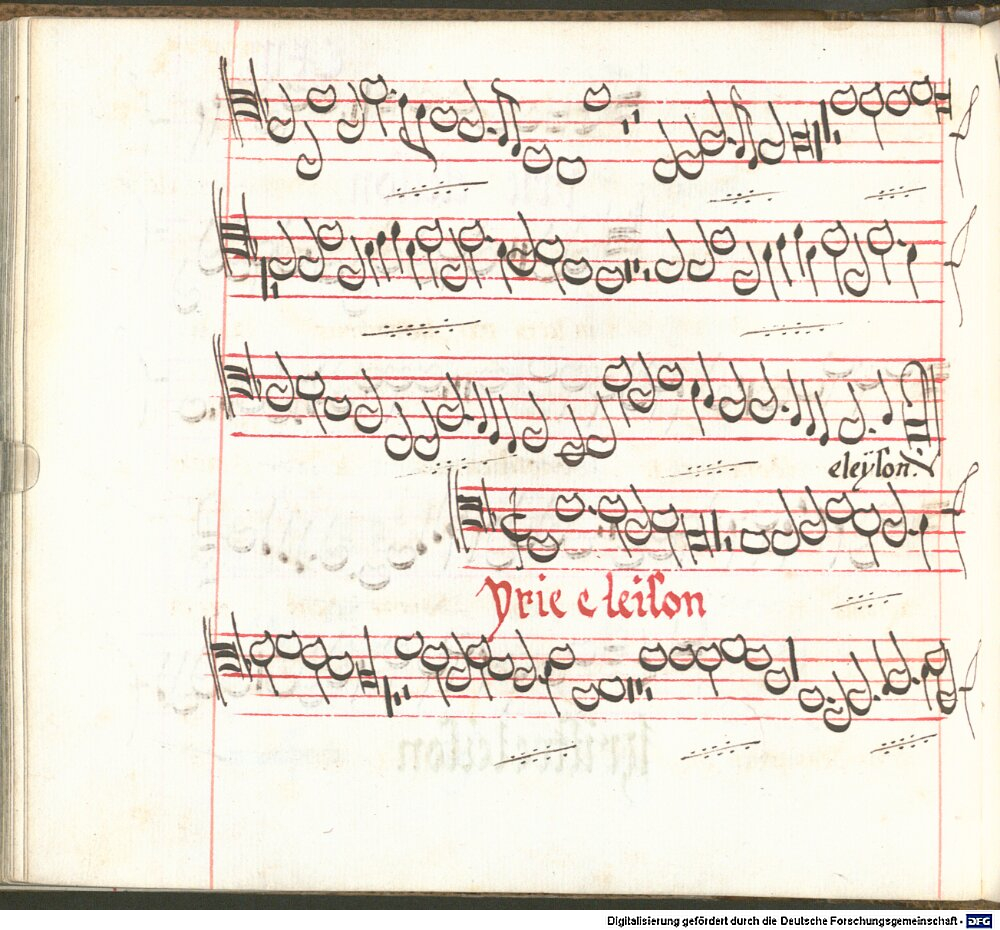 eleÿson.
yrie e leison
Digitalisierung gefördert durch die Deutsche Forschungsgemeinschaft - DFG